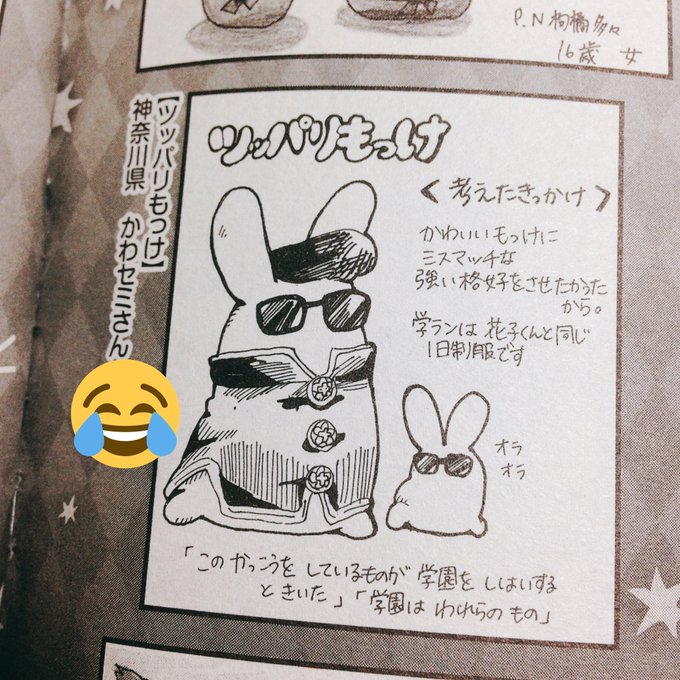 P.N 枸橘多々
16歳 女
【ツッパリもっけ】
神奈川県 かわセミさん
ツッパリもっけ
〈 考えたきっかけ 〉
かわいいもっけに
ミスマッチな
強い格好をさせたかった
から。
学ランは花子くんと同じ
旧制服です
オラ
オラ
「このかっこうをしているものが学園をしはいする
ときいた」「学園はわれらのもの」